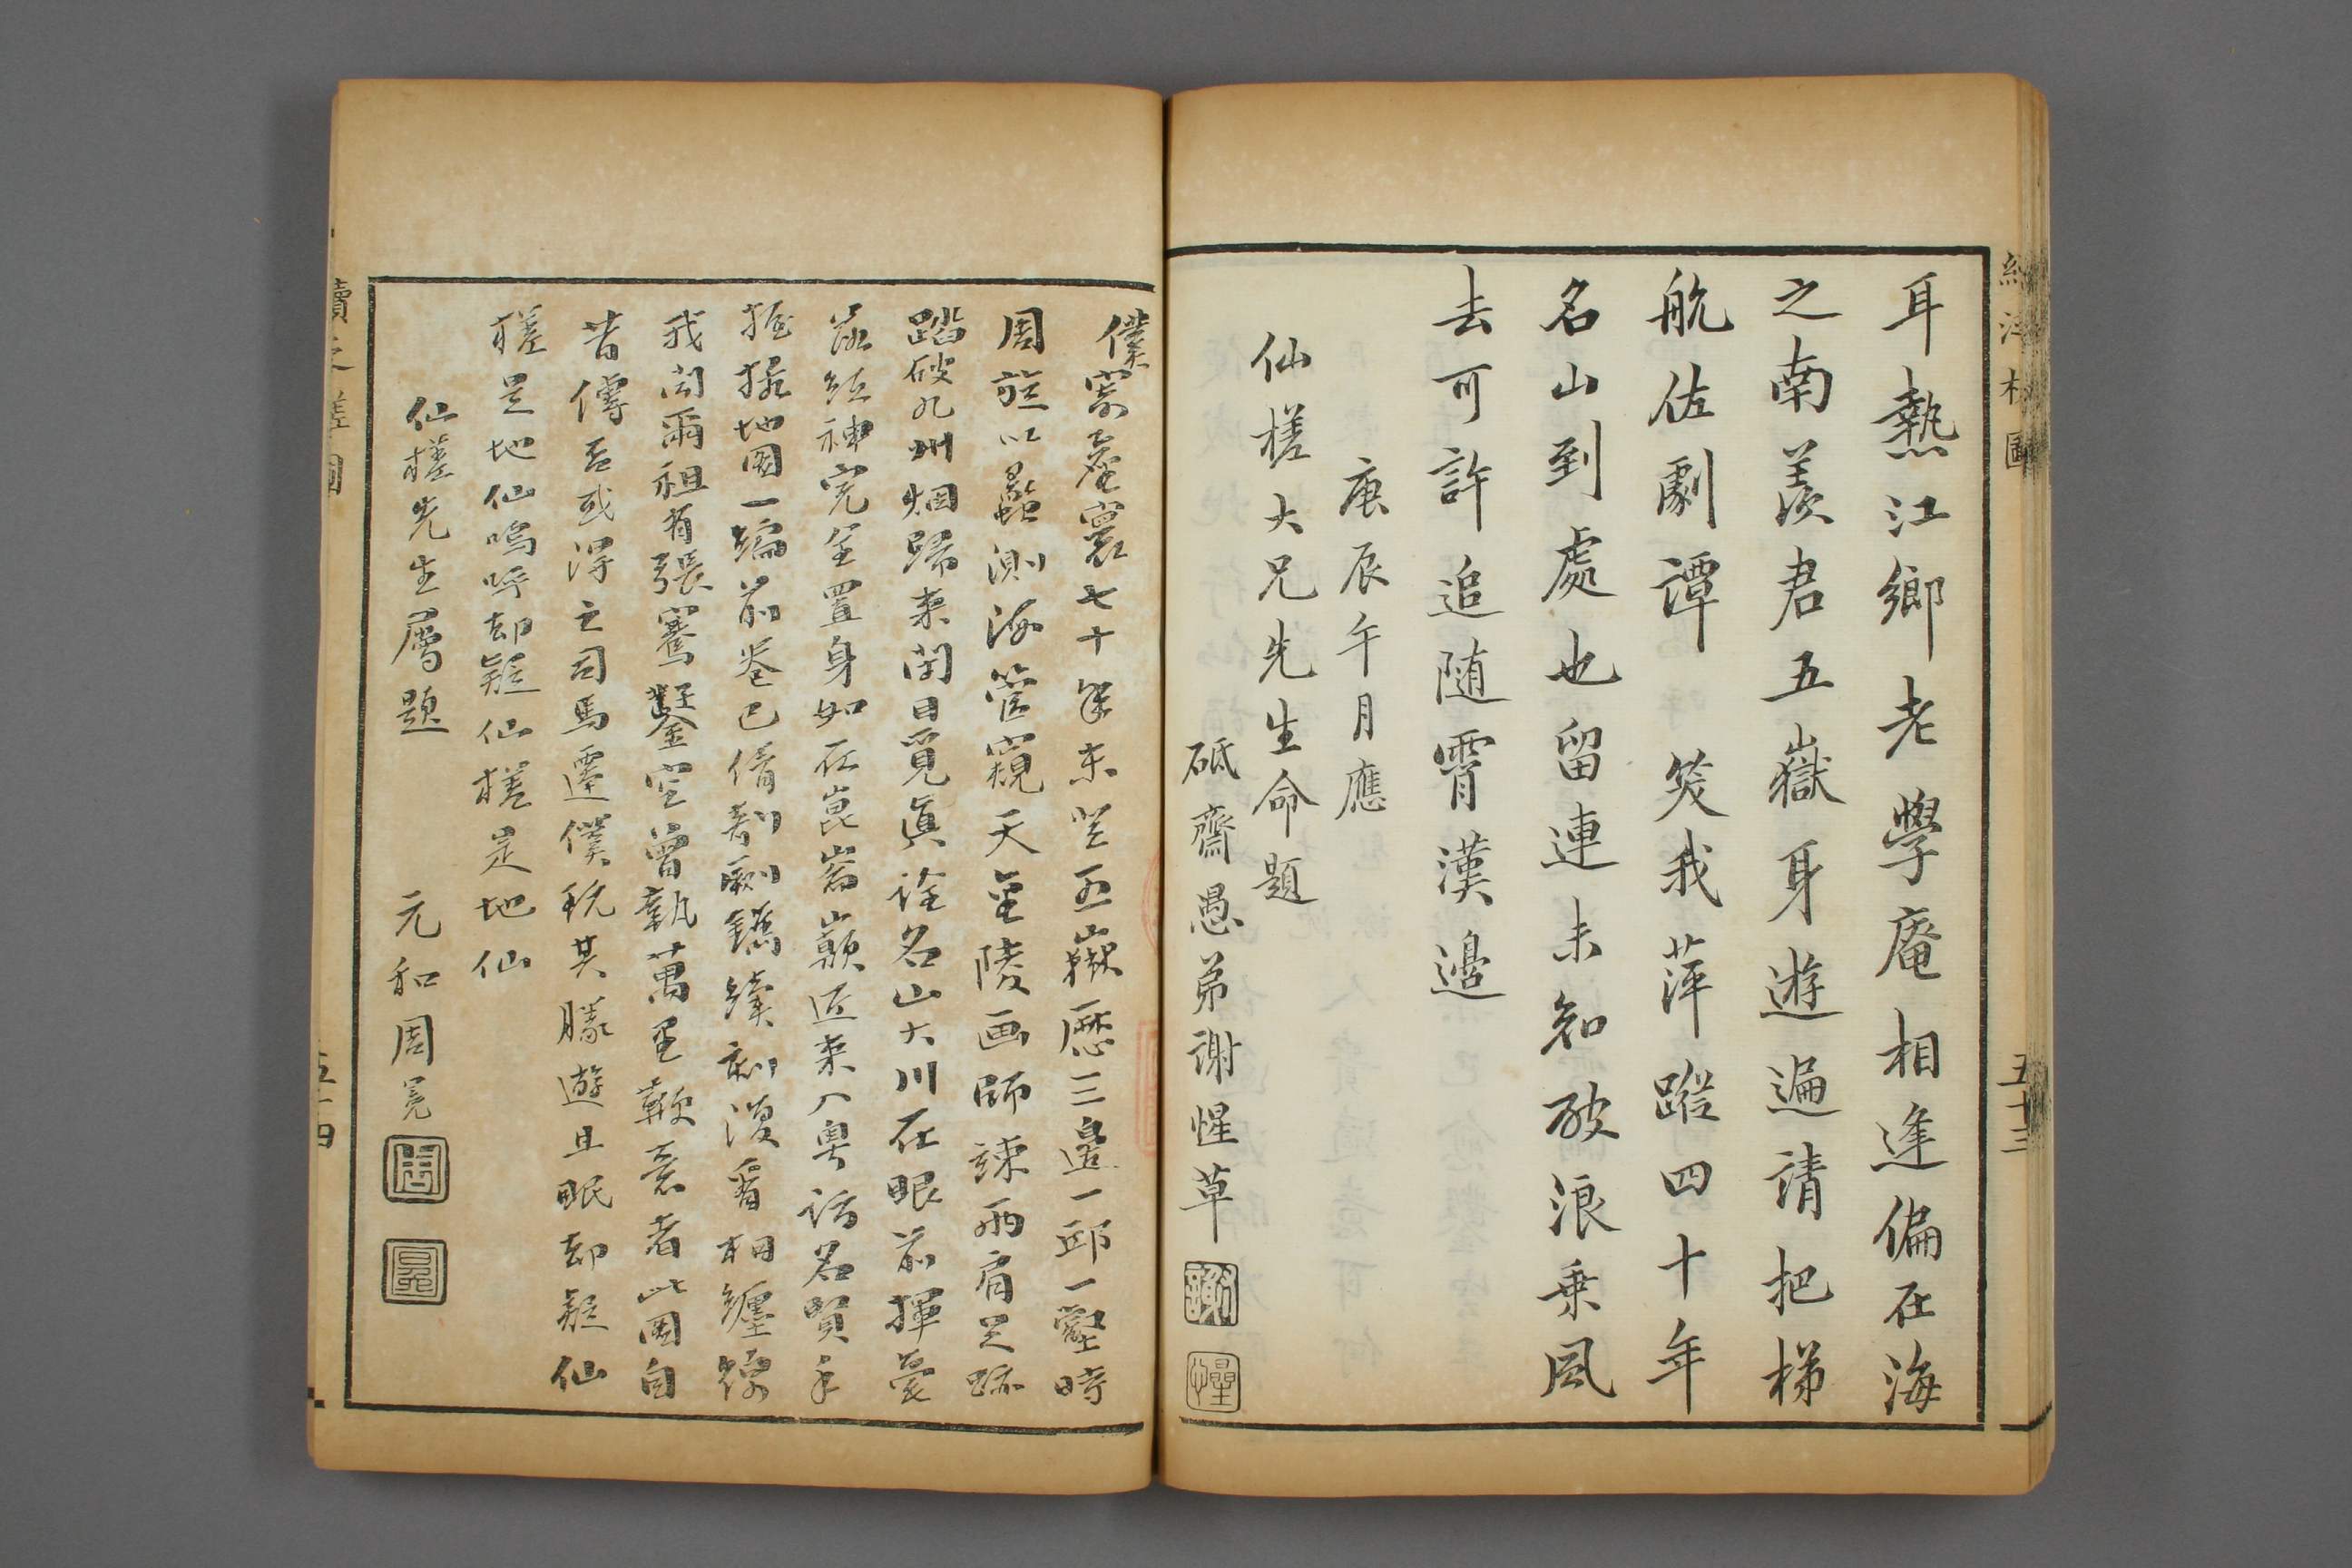 耳熱江鄉老學庵相逢偏在海
之南羨君五嶽身遊遍請把梯
航佐劇譚　笑我萍蹤四十年
名山到處也留連未知破浪乘風
去可許追随霄漢邊
庚辰午月應
仙槎大兄先生命題
砥齋愚弟謝惺草
謝
惺
五十三
僕窮蒼寰七十年未登五嶽歷三邊一邱一壑時
周旋以蠡測海管窺天金陵画師諫兩肩足跡
踏破九州烟歸来閉目覓真詮名山大川在眼前揮毫
落紙神完全置身如在崑崙巔近来入粤訪名賢手
握地圖一編前卷已倩剞劂鐫續刻漫看相纏綿
我聞爾祖有張騫鑿空曾執萬里鞭意者此圖自
昔傳否或得之司馬遷僕耽其勝遊且眠却疑仙
槎是地仙嗚呼却疑仙槎是地仙
仙槎先生属題
元和周冕
周
冕
續泛槎圖
五十四